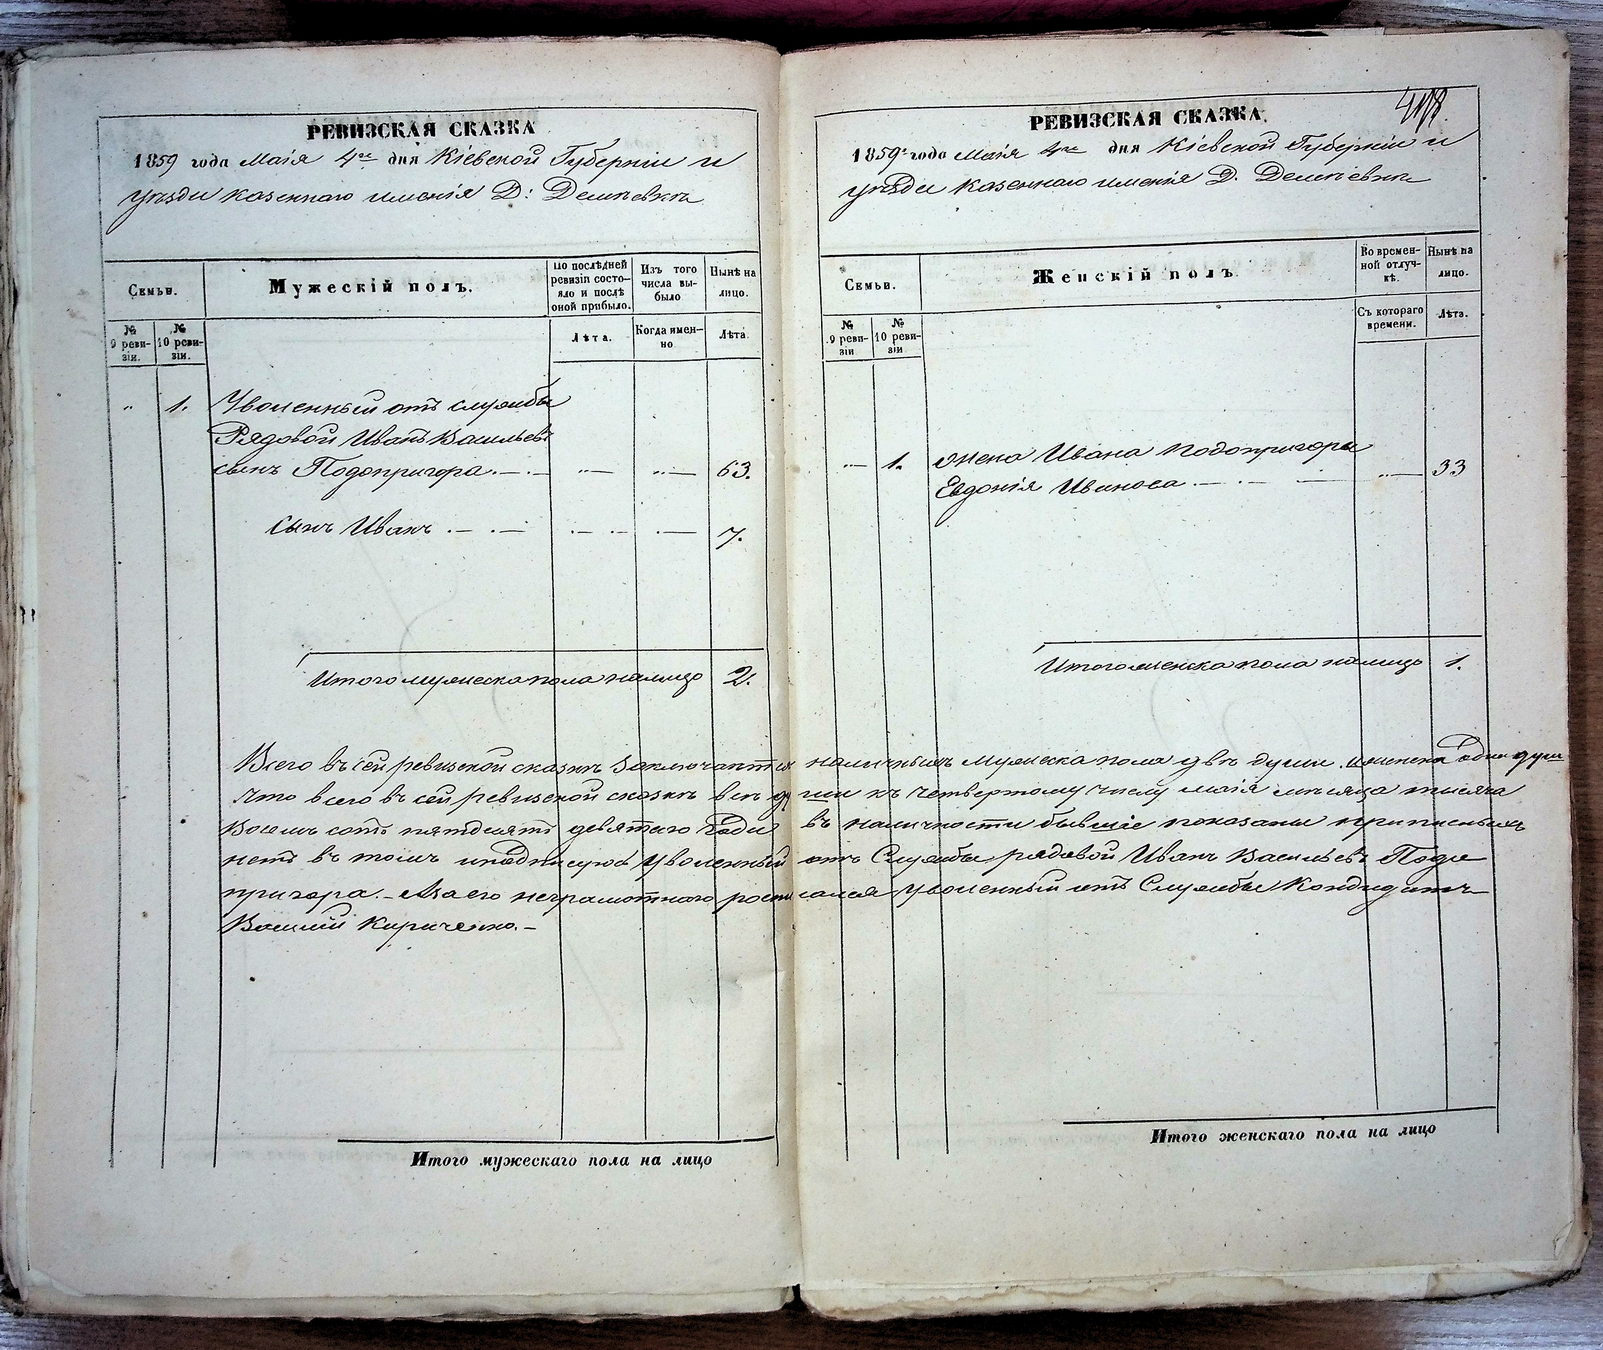 РЕВИЗСКАЯ СКАЗКА
1859 года Маія 4го дня Кіевской Губерніи и
уѣзда казеннаго имѣнія Д: Деміевки
Семьи.
Мужескій полъ.
По послѣдней ревизіи состояло и послѣ оной прибыло.
Изъ того числа выбыло
Нынѣ на лицо.
№ 9 ревизіи.
№ 10 ревизіи.
Лѣта.
Когда именно
Лѣта.
" 1. Уволенный отъ службы
Рядовой Иванъ Васильевъ
сынъ Подопригора . — . — " — " — 63.
Сынъ Иванъ . — . — . — . — . — 7.
Итого мужеска пола налицо 2.
418.
РЕВИЗСКАЯ СКАЗКА.
1859го года Маія 4го дня Кіевской Губерніи и
уѣзда казеннаго имѣнія Д. Деміевки
Семьи.
Женскій полъ.
Во временной отлучкѣ.
Нынѣ на лицо.
№ 9 ревизіи
№ 10 ревизіи
Съ котораго времени.
Лѣта.
" — 1. жена Ивана Подопригоры
Евдокія Иванова . — . — — " — 33
Итого женска пола налицо 1.
Всего въ сей ревизской сказкѣ заключается наличныхъ мужеска пола двѣ души. и женска одна душа
что всего въ сей ревизской сказкѣ всѣ души къ четвертому числу маія мѣсяца тысяча
восемь сотъ пятдесятъ девятаго года въ наличности бывшіе показаны и
нетъ въ томъ и подписуюсь уволенный отъ Службы рядовой Иванъ Васильевъ Подо
пригора. — А за его неграмотнаго росписался уволенный отъ Службы Кондидатъ
Василій Кириченко. —
Итого мужескаго пола на лицо
Итого женскаго пола на лицо